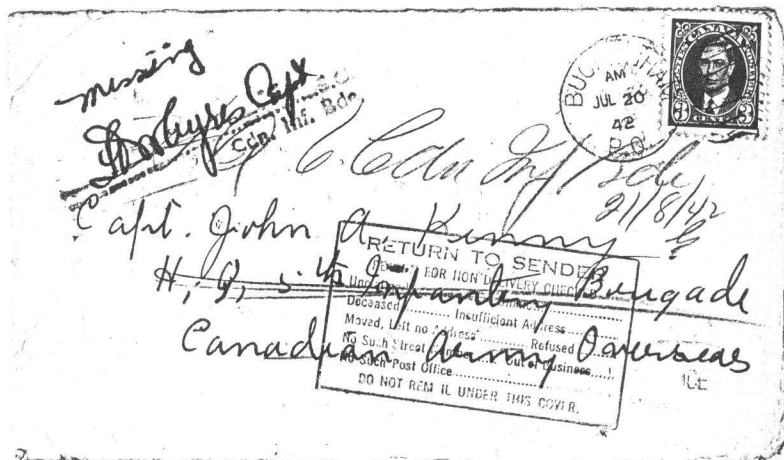 missing
Capt
S.C.
Cdn. Inf. Bde
POSTES CANADA POSTAGE
3 CENTS 3
BUCKINGHAM
AM
JUL 20
42
P.Q.
6. Cdn Inf Bde
21/8/42
Capt. John A. Kenny
H. Q. 5th Infantry Brigade
Canadian Army Overseas
RETURN TO SENDER
FOR NON DELIVERY CHECKED
Deceased........ Insufficient Address........
Moved, Left no Address........ Refused........
No Such Street Out of Business....
No Such Post Office........
DO NOT REMAIL UNDER THIS COVER.